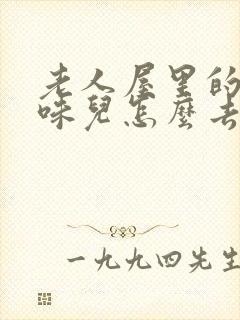 老人屋里的
味兒怎麼去
一九九四先生